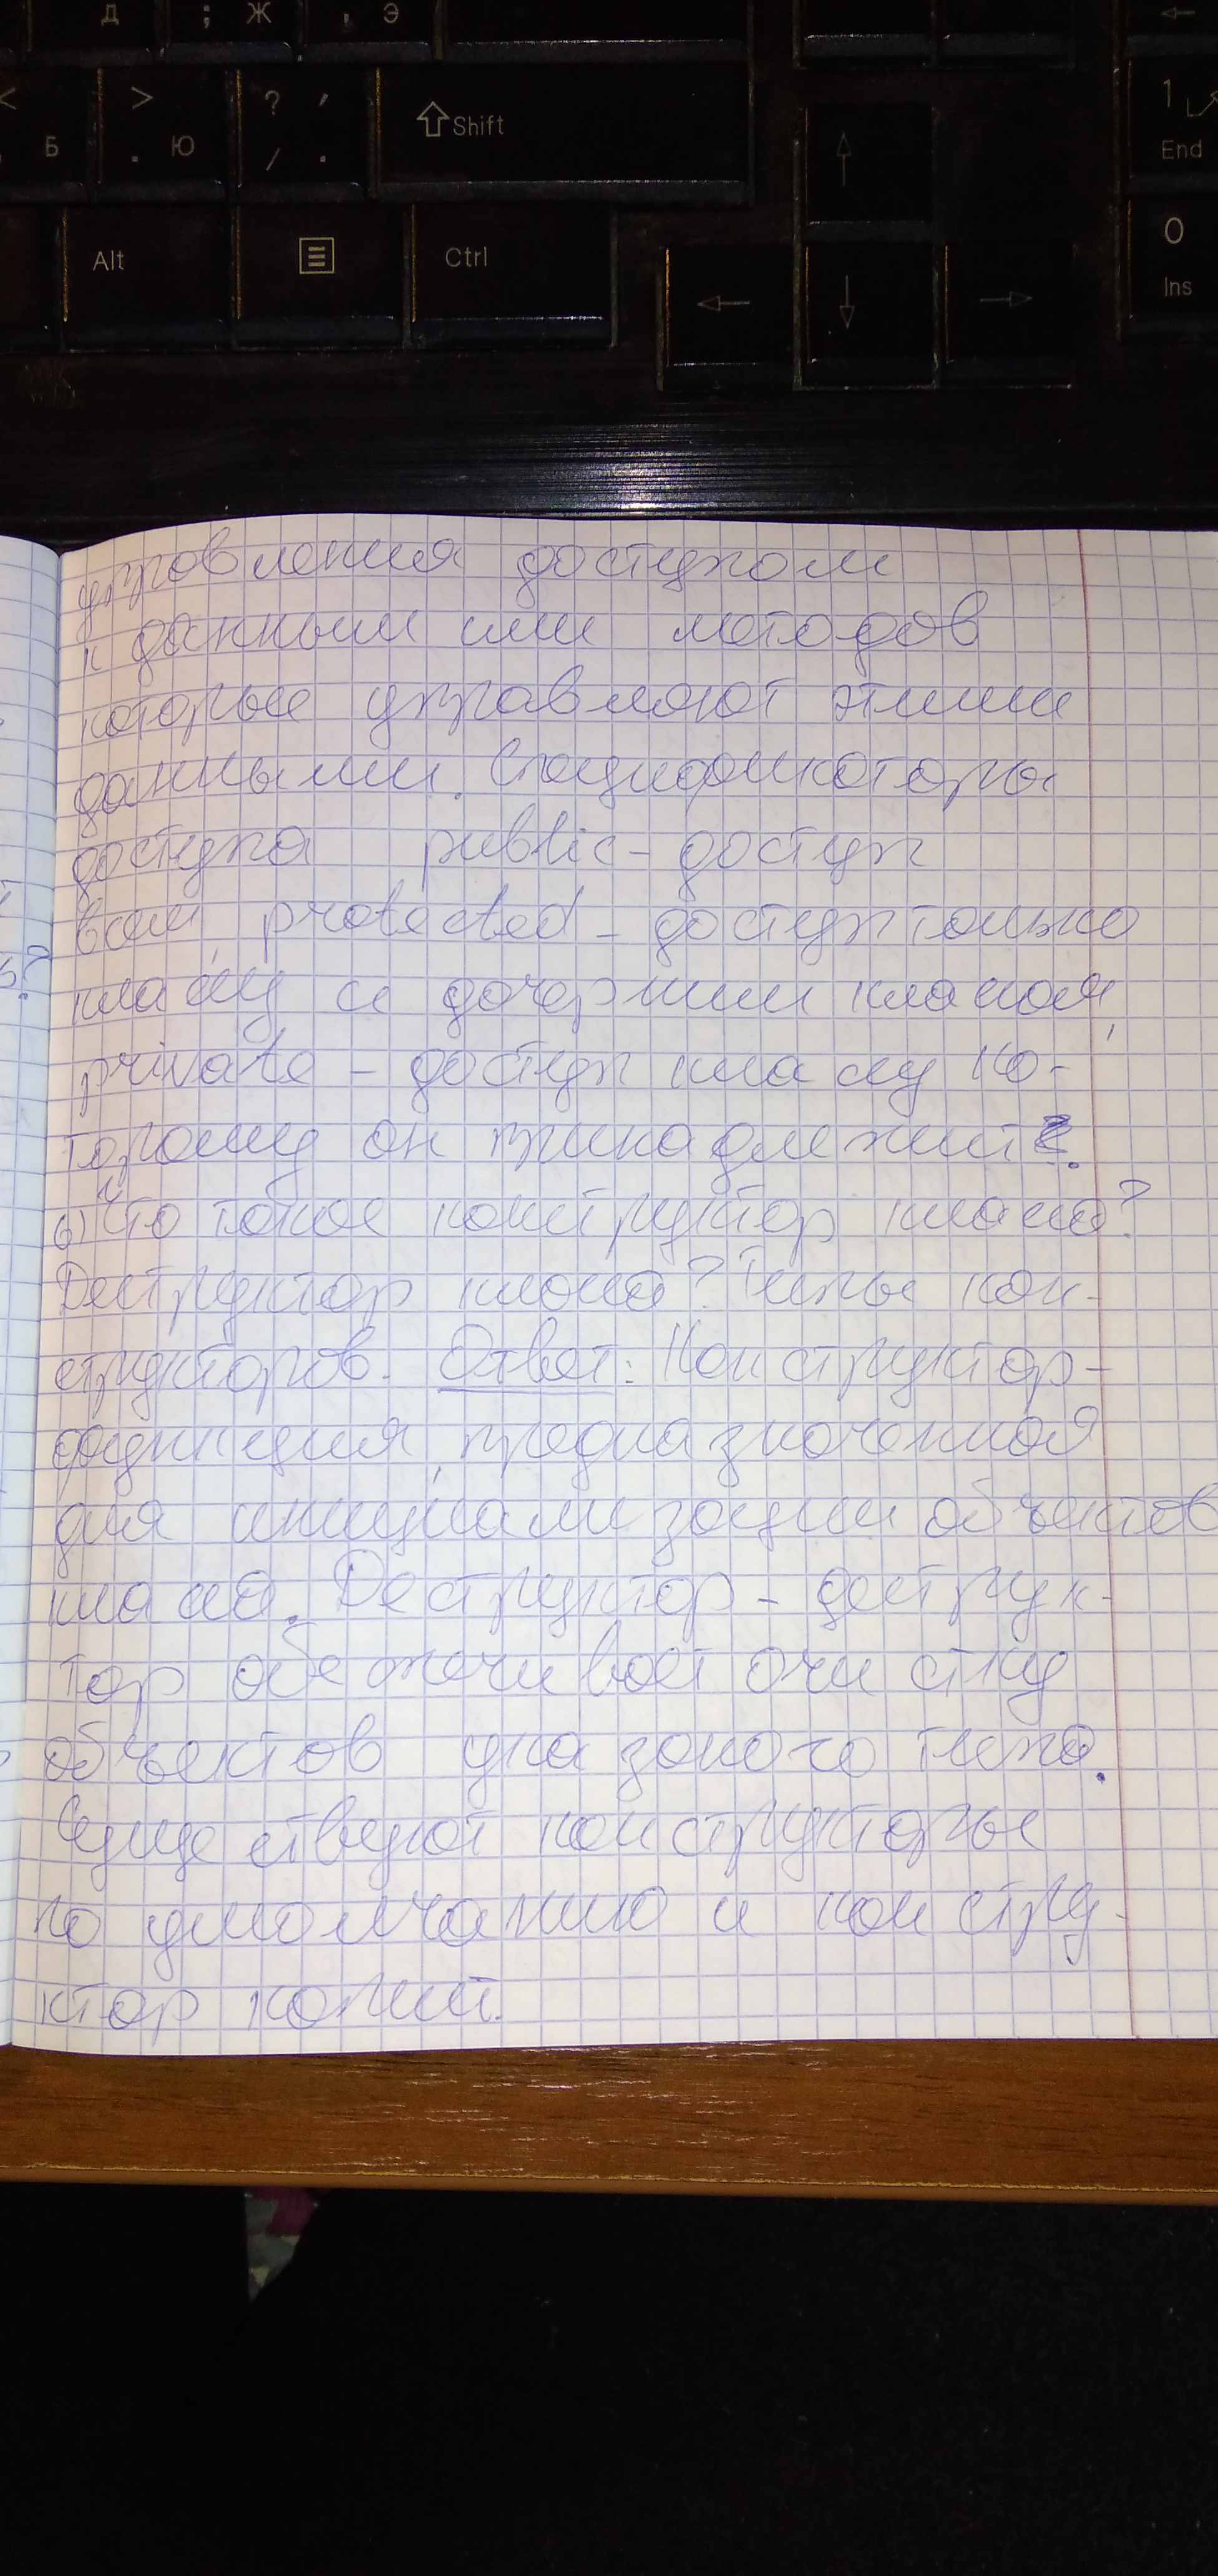 Д ; Ж , Э ←
< Б > . Ю ? , / . Shift ↑ 1 End
Alt Ctrl ← ↓ → 0 Ins
управления доступом
к данным или методов
которые управляют этими
данными. Спецификаторы
доступа public - доступ
всем, protected - доступ только
классу и дочерним классам,
private - доступ классу ко-
торому он принадлежит.
6) Что такое конструктор класса?
Деструктор класса? Типы кон-
структоров. Ответ: Конструктор -
функция, предназначенная
для инициализации объектов
класса. Деструктор - деструк-
тор обеспечивает очистку
объектов указаного типа.
Существуют конструкторы
по умолчанию и констру-
ктор копий.